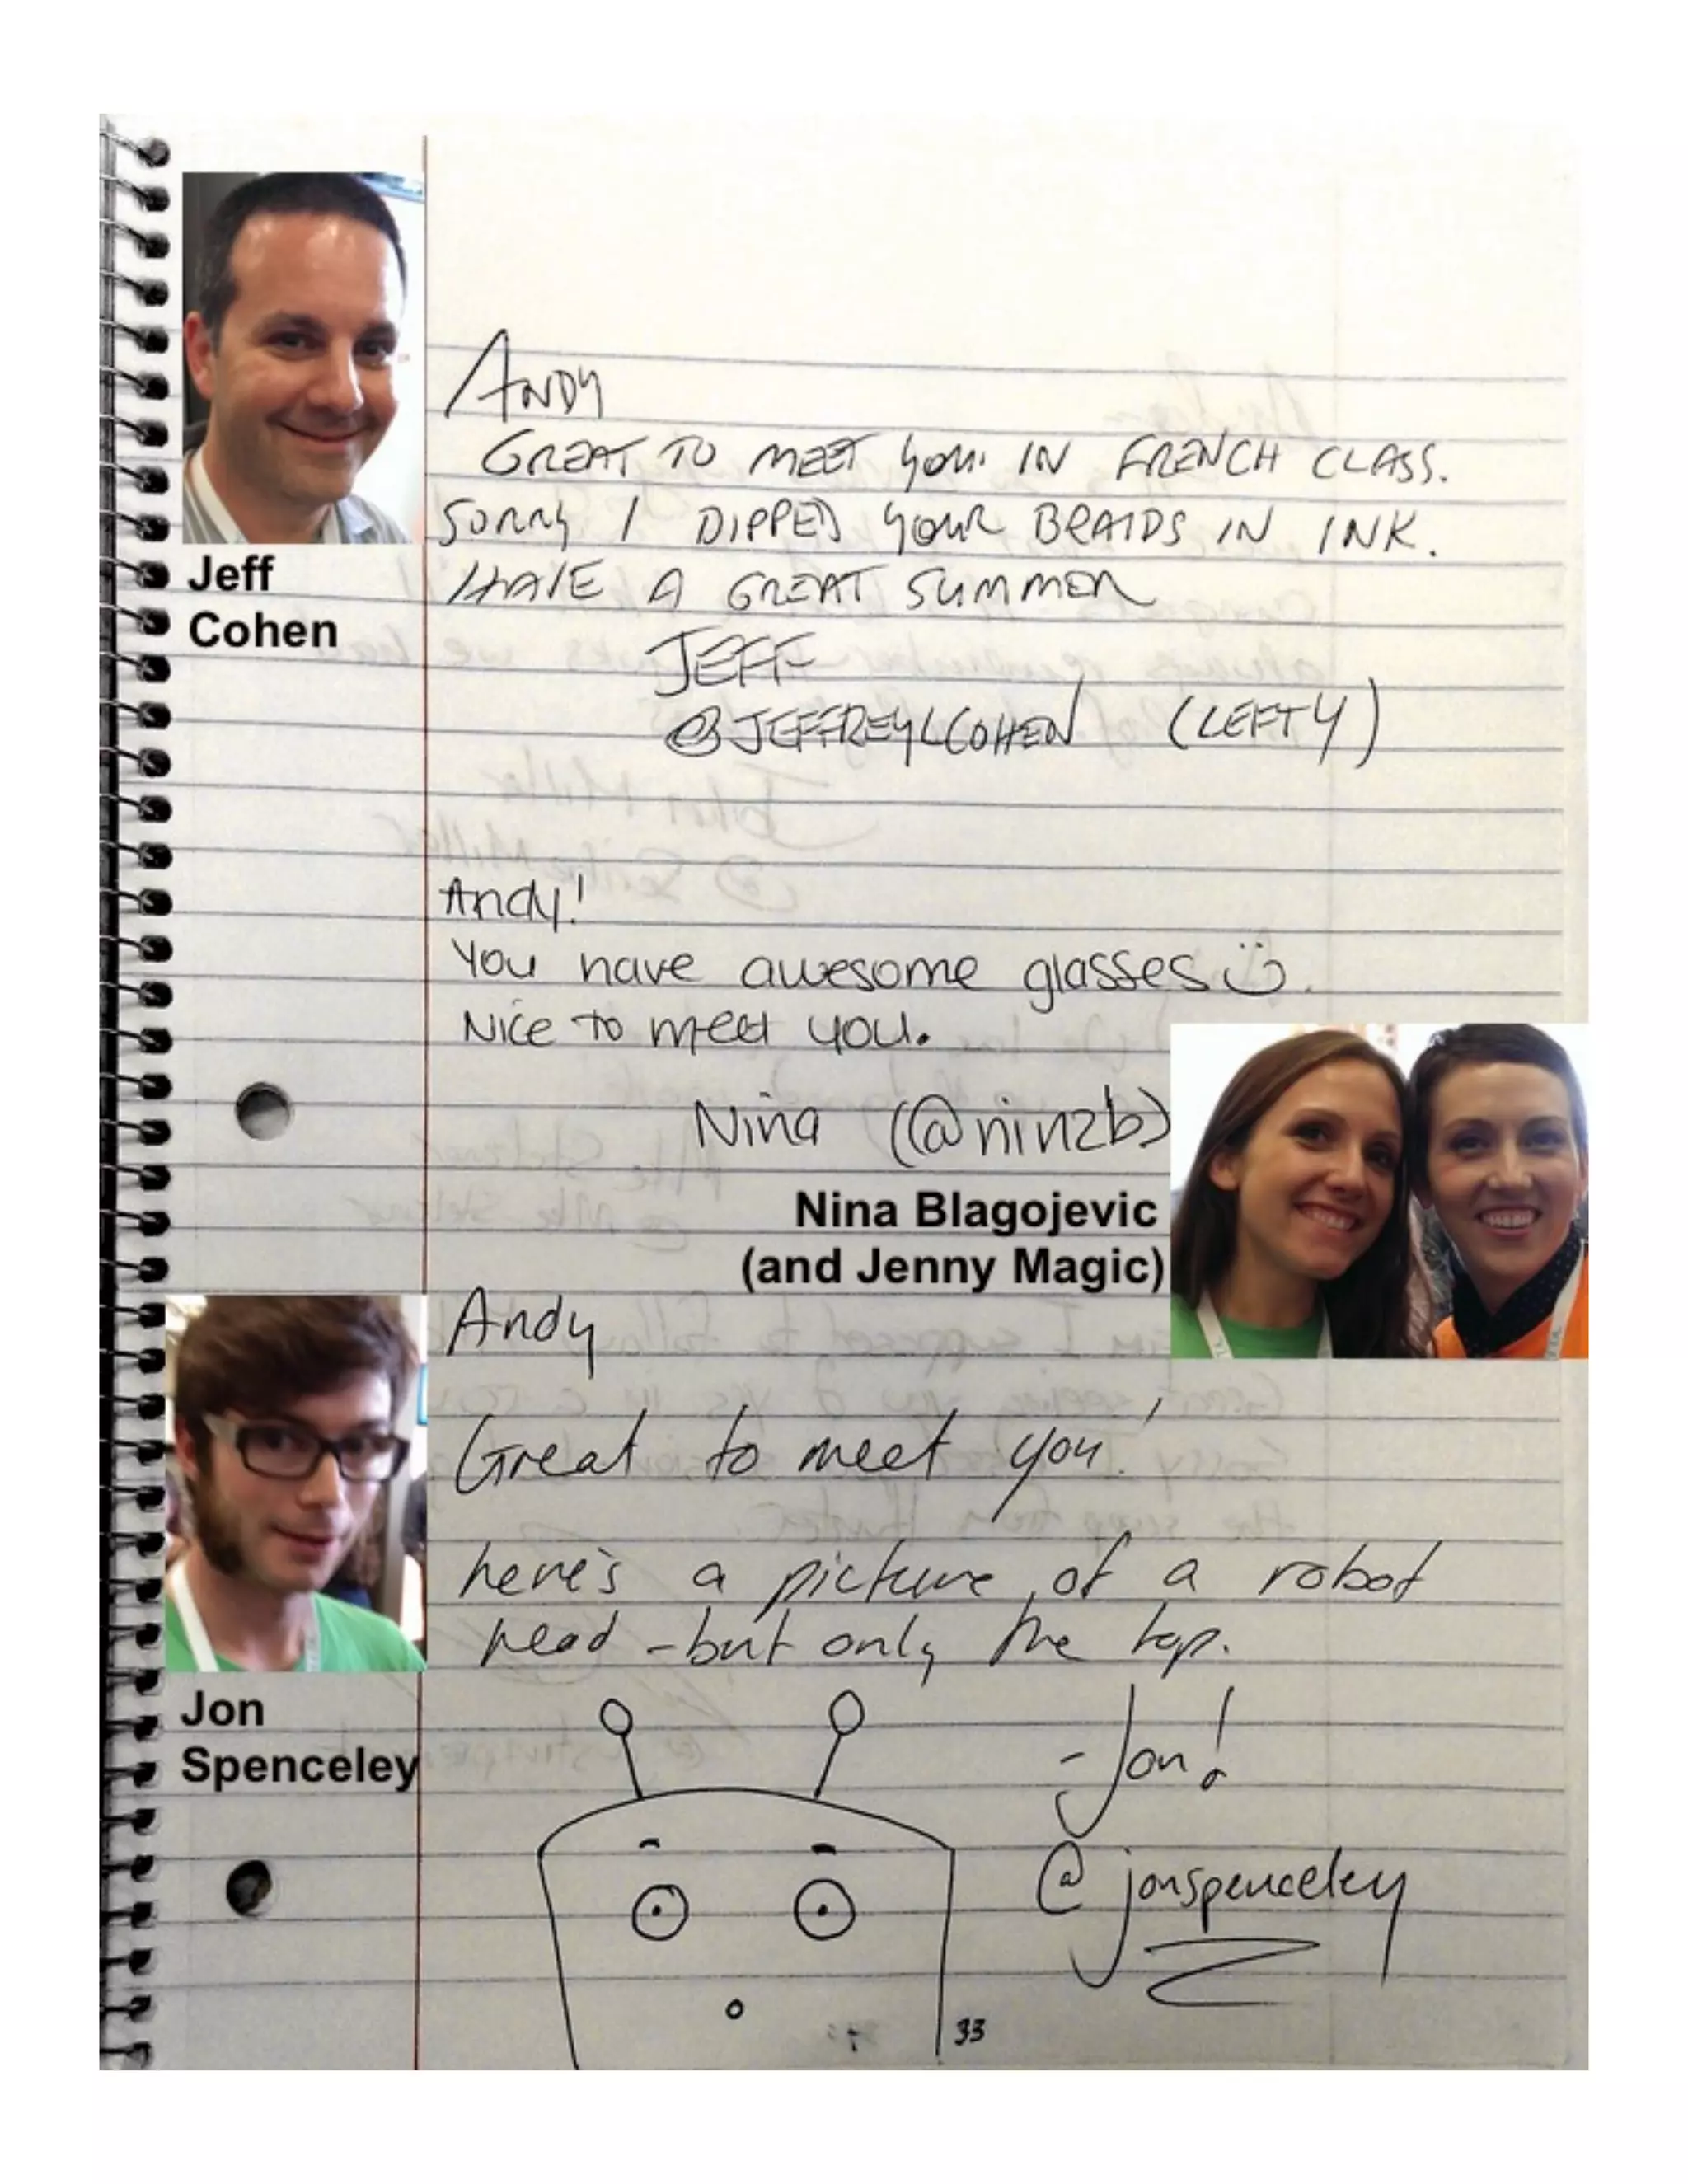 Jeff
Cohen
ANDY
GREAT TO MEET YOU. IN FRENCH CLASS.
SORRY I DIPPED YOUR BRAIDS IN INK.
HAVE A GREAT SUMMER
JEFF
@JEFFREYLCOHEN (LEFTY)
Andy!
You have awesome glasses ü.
Nice to meet you.
Nina (@ninzb)
Nina Blagojevic
(and Jenny Magic)
Andy
Great to meet you!
here's a picture of a robot
head - but only the top.
Jon
Spenceley
-Jon!
@jonspenceley
33